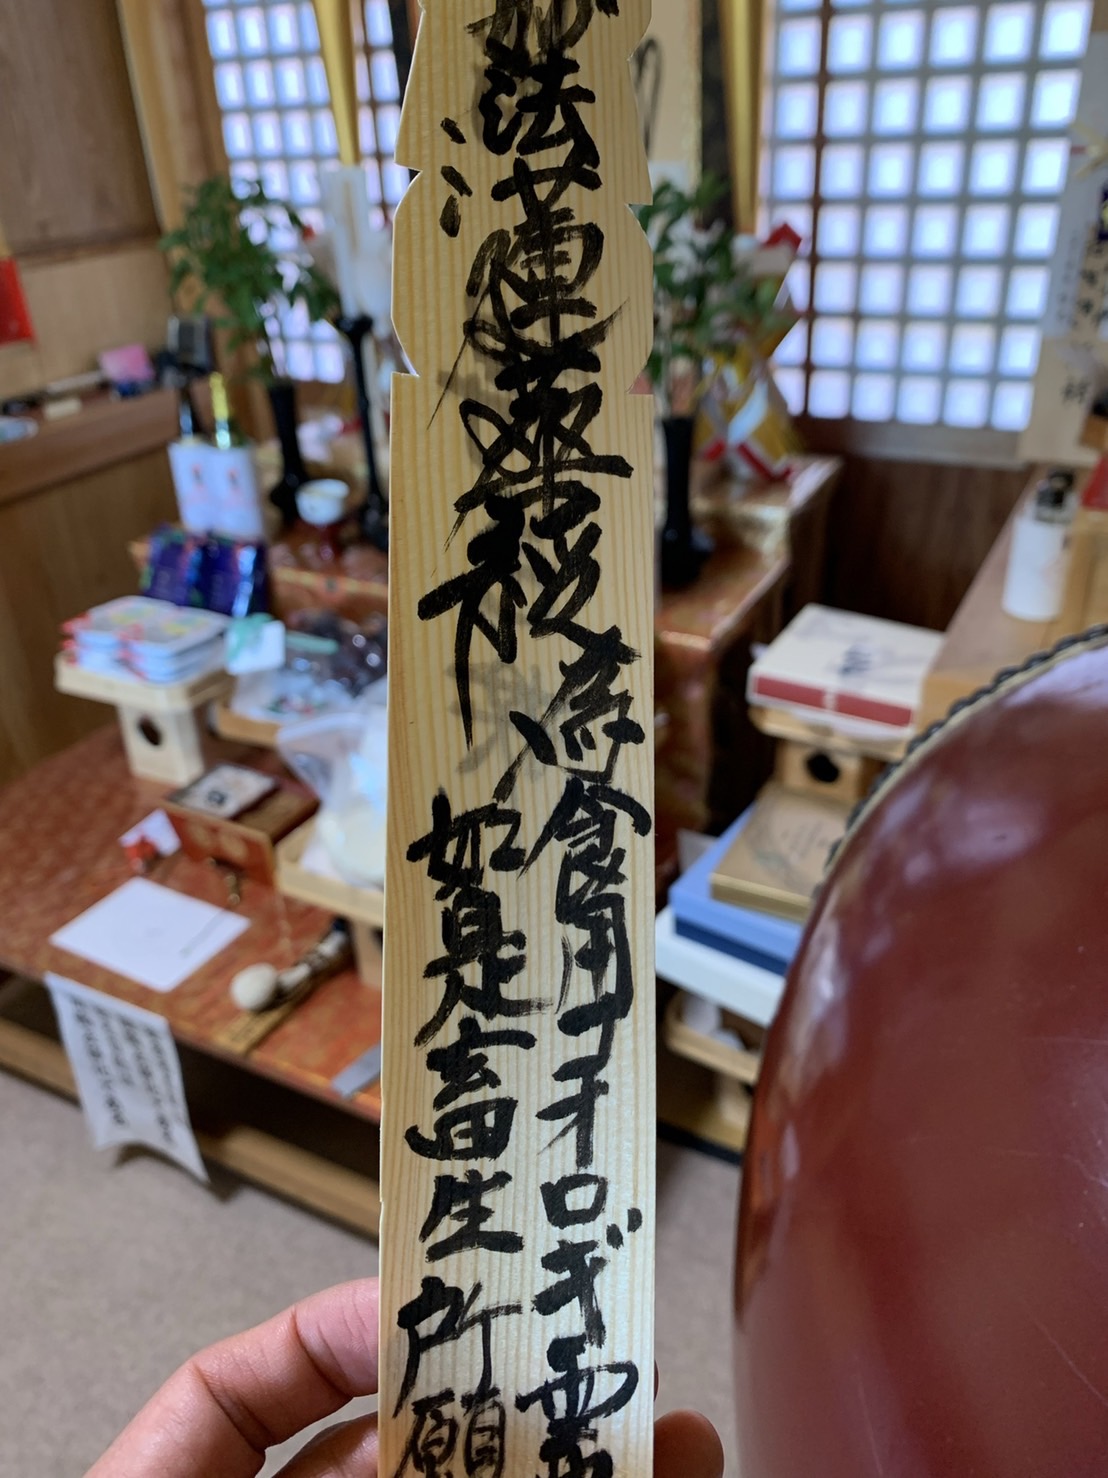 妙法蓮華経
為食用コオロギ霊
如是畜生所願